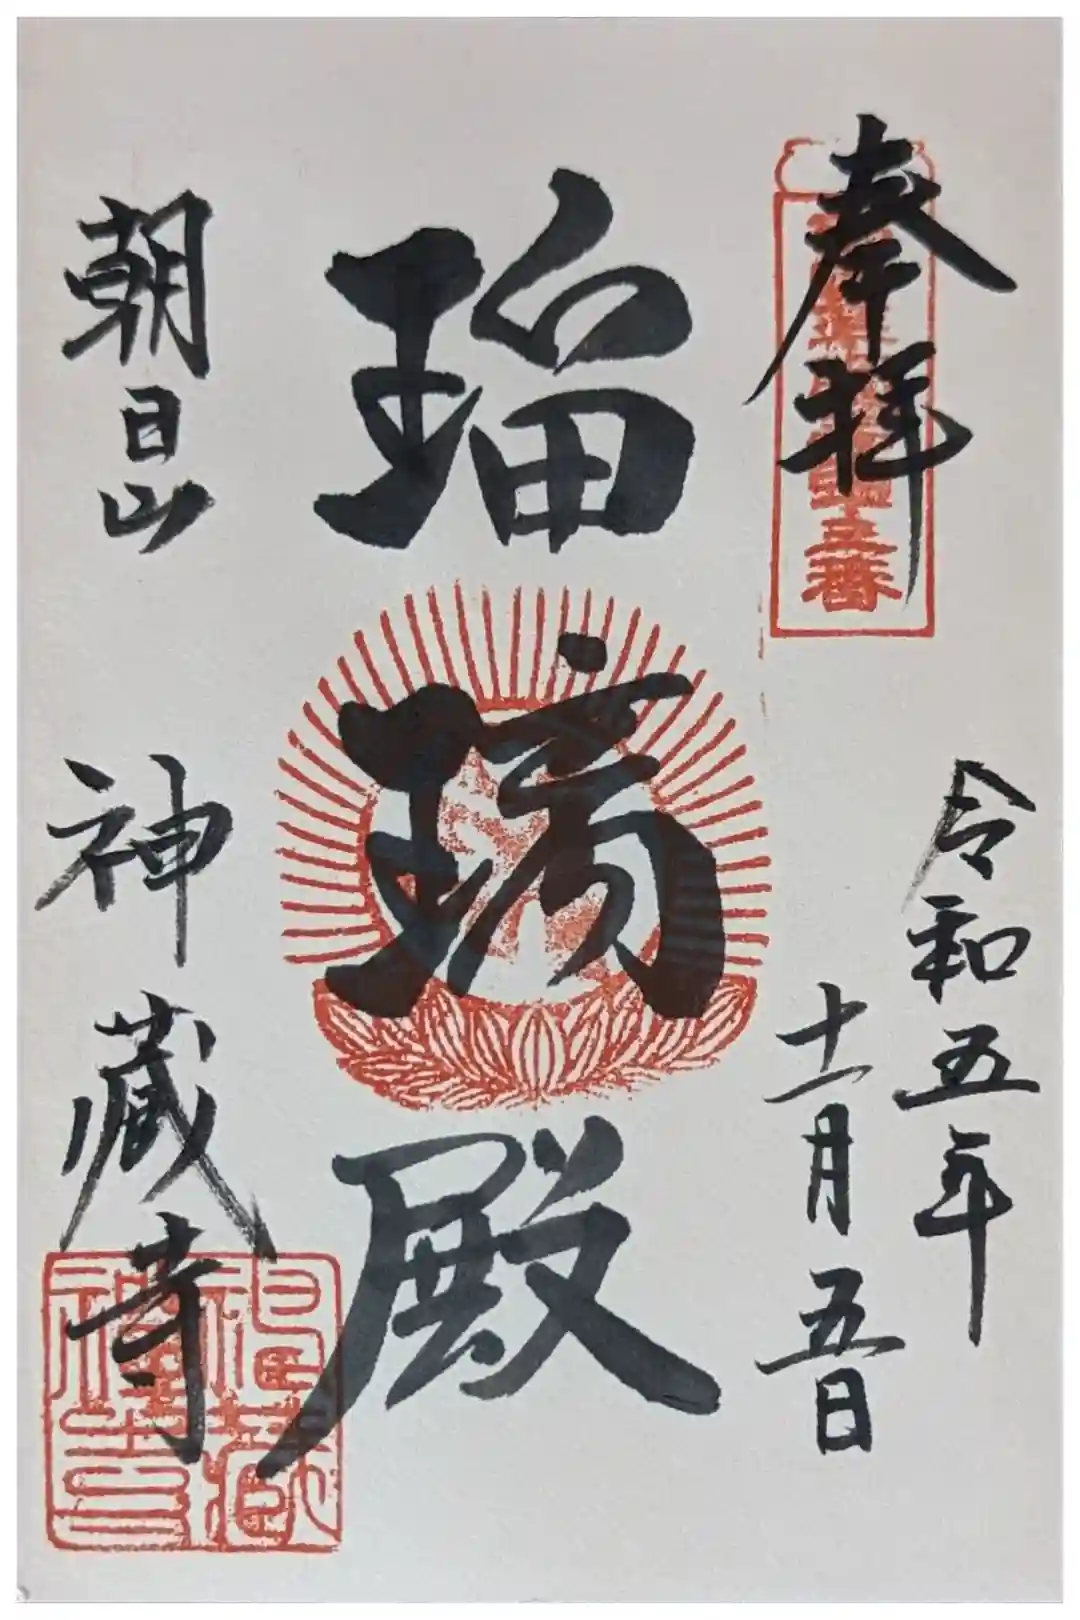 奉拝
令和五年
十一月五日
瑠璃殿
朝日山
神蔵寺